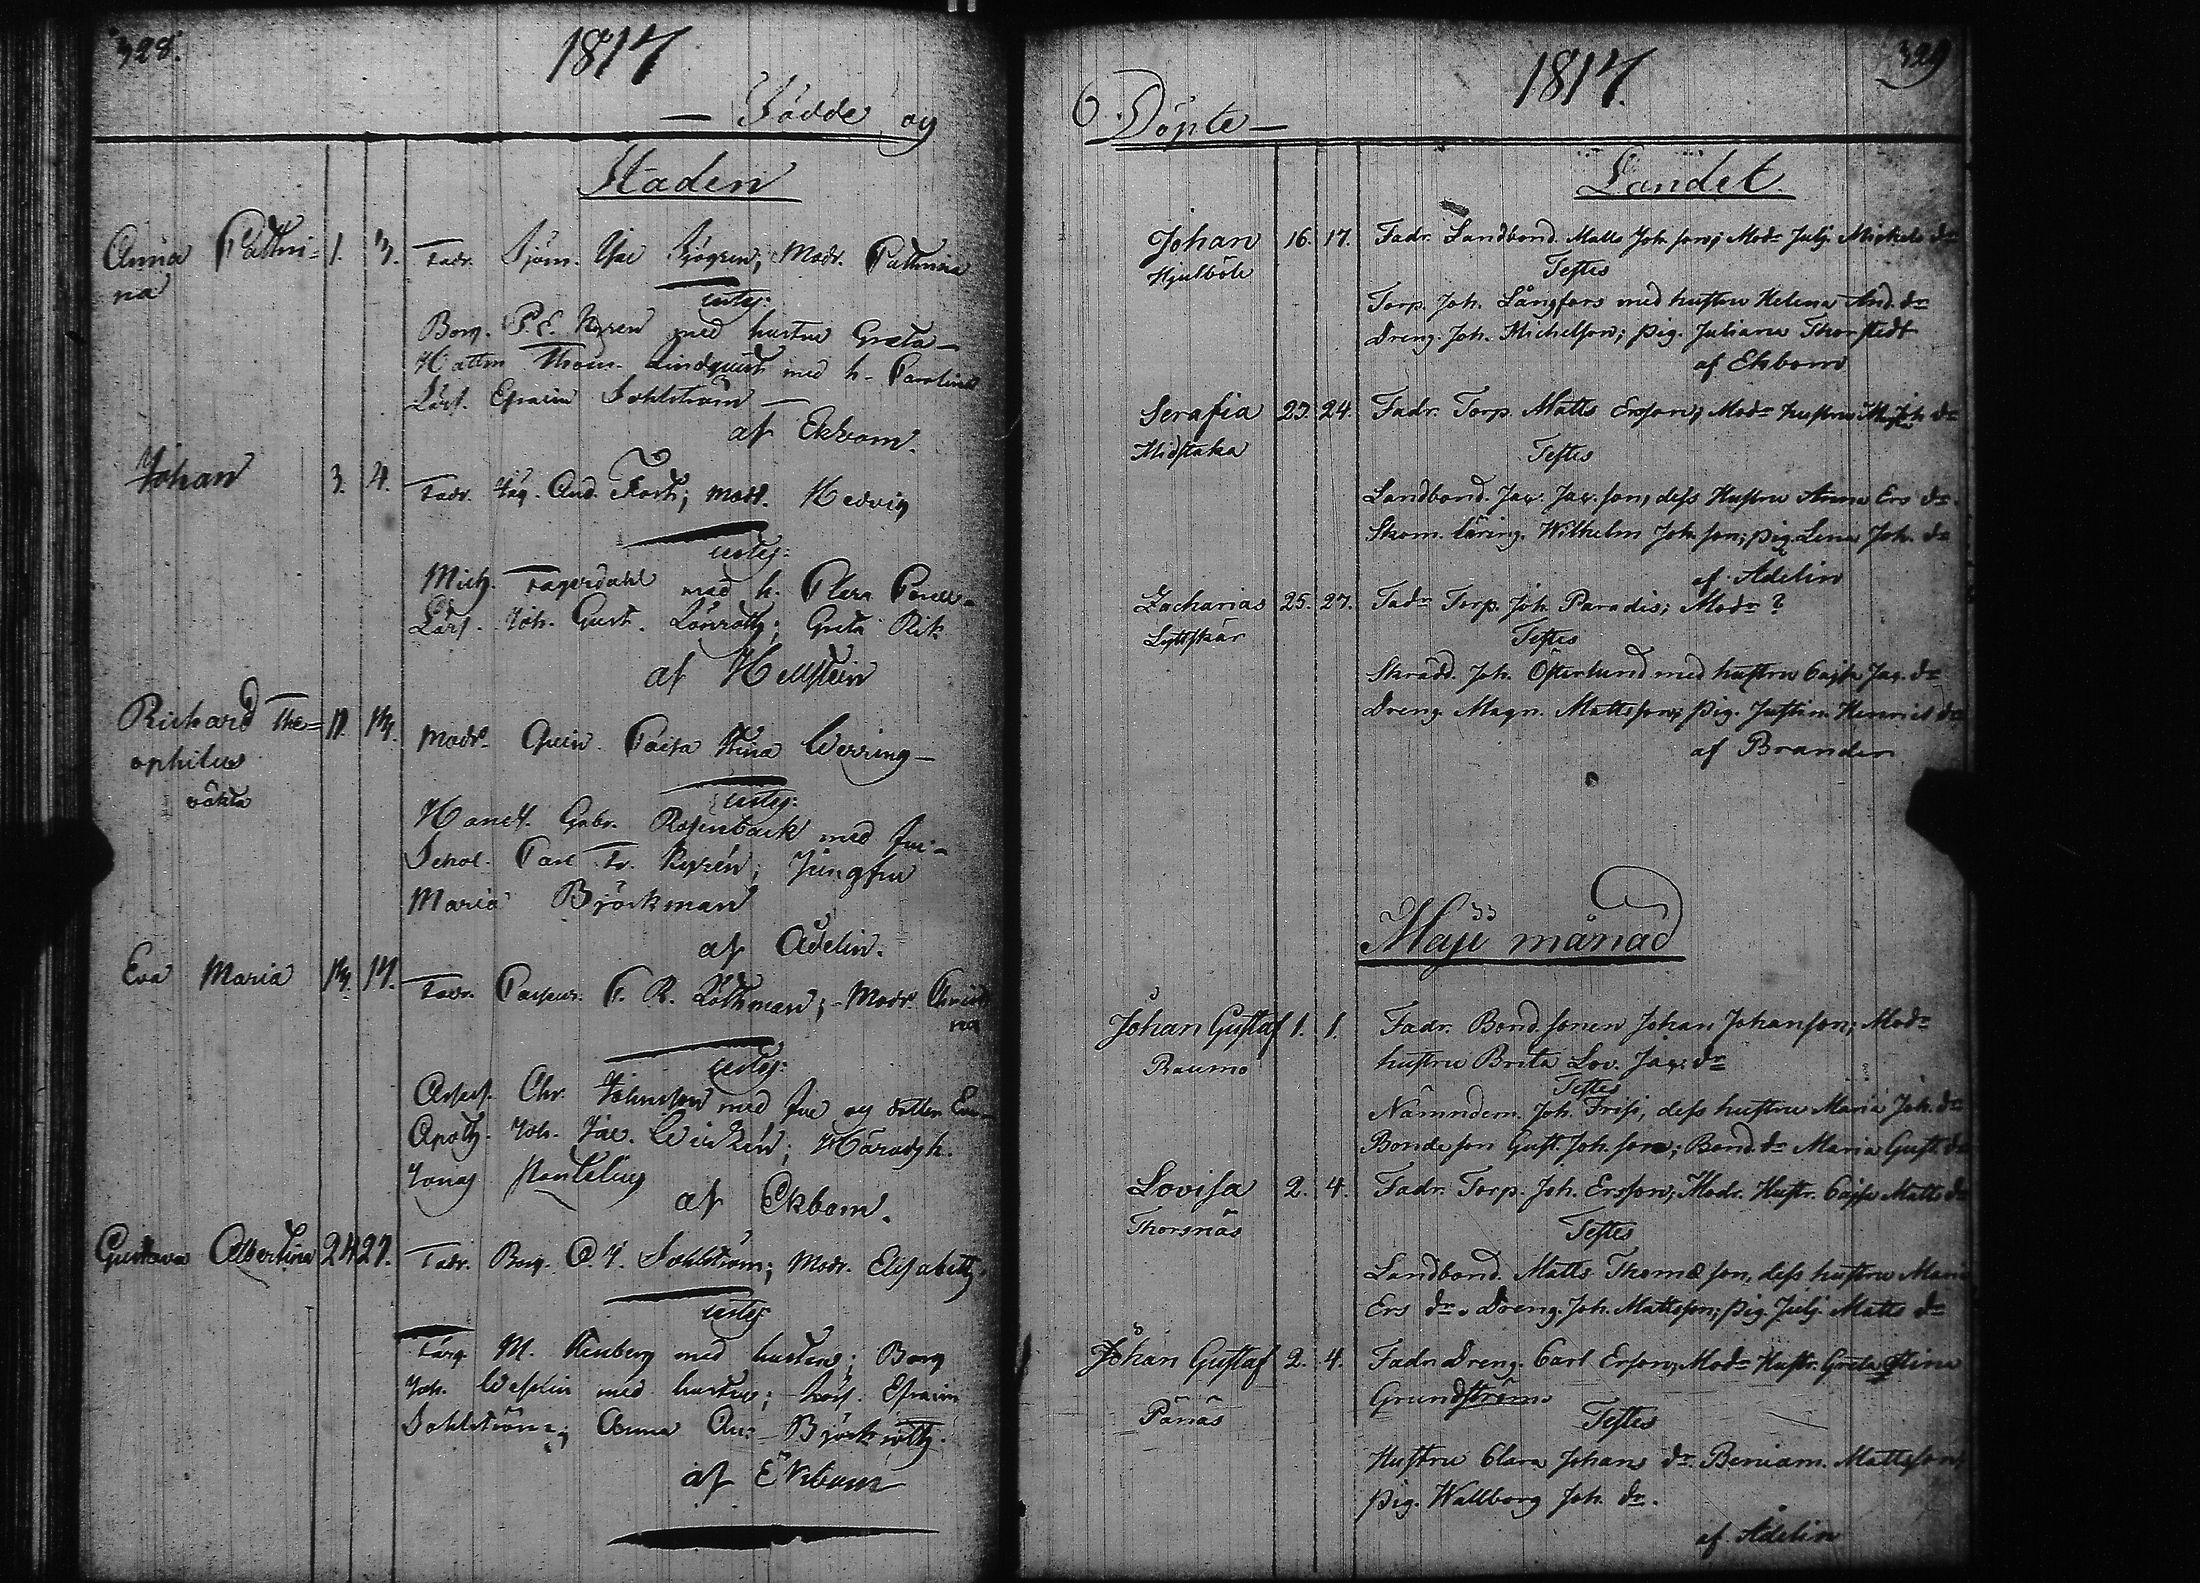 328.
1817
— Födde og
Staden
Anna Cathri= 1. 3. Fadr. Sjöm. Isac Sjögren; Modr. Cathrina
na
testes:
Borg. P. E. Nyren med hustru Greta—
Hattm. Thom. Lindquist med h. Carolina
Lärl. Efraim Sohlström—
af Ekbom.
Johan 3. 4. Fadr. And. Forss; Modr. Hedvig
testes:
Mich. Fagerdahl med h. Clara
Lärl. Joh. Gust. Lönroth; Greta
af Hellstein
Richard The= 11. 14. Modr. Caisa Stina Werring—
ophilus
oäkta
testes:
Handl. Gabr. Rosenback med fru—
Schol. Carl Fr. Nyrén; Jungfru
Maria Björkman
af Adelin.
Eva Maria 14. 17. Fadr. C. R. Röthman; Modr. Christi
na
testes:
Assess. Chr. Johnsson med fru og dotter
Apoth. Joh. Jac. Häradsh.
Jonas
af Ekbom.
Gustava Albertina 24. 27. Fadr. Borg. Sohlström; Modr. Elisabeth
testes
Färg. M. Renberg med hustru; Borg
Joh. Wesslin med hustru; Lärl. Efraim
Sohlström; Anna Björkroth.
af Ekbom
329
1817.
Döpte—
Landet.
Johan 16. 17. Fadr. Landbond. Matts Joh. son; Modr Julj. Mickels dr
Hjulböle
Testes
Torp. Joh. Långfors med hustru Helena And. dr
Dreng. Joh. Michelson; pig. Juliana Thorstedt
af Ekbom
Serafia 23. 24. Fadr. Torp. Matts Ersson; Modr hustru Joh. dr
Midstaka
Testes
Landbond. Jac. Jac. son, dess Hustru Anna Ers dr.
Skom. läring. Wilhelm Joh. son; pig. Lena Joh. dr
af Adelin
Zacharias 25. 27. Fadr Torp. Joh. Paradis; Modr ?
Lyttskär
Testes
Skrädd. Joh. Österlund med hustru Cajsa Jac. dr
Dreng Magn. Mattsson; pig. Justin. Henrics dr
af Brander
Maji månad
Johan Gustaf 1. 1. Fadr. Bond. sonen Johan Johanson; Modr
Raumo
hustru Brita Lov. Jac. dr
Testes
Nämndem. Joh. Frisi, dess hustru Maria Joh. dr
Bonde son Gust. Joh. son; Bond. dr Maria Gust. dr
Lovisa 2. 4. Fadr. Torp. Joh. Ersson; Modr. Hustr. Cajsa Matts dr
Thorsnäs
Testes
Landbond. Matts Thomæ son, dess hustru Maria
Ers dr. Dreng. Joh. Mattsson; pig. Julj. Matts dr
Johan Gustaf 2. 4. Fadr. Dreng. Carl Ersson; Modr Hustr. Greta Stina
Grundström
Pånäs
Testes
Hustru Clara Johans dr. Beniam. Mattsson;
pig. Wallborg Joh. dr.
af Adelin